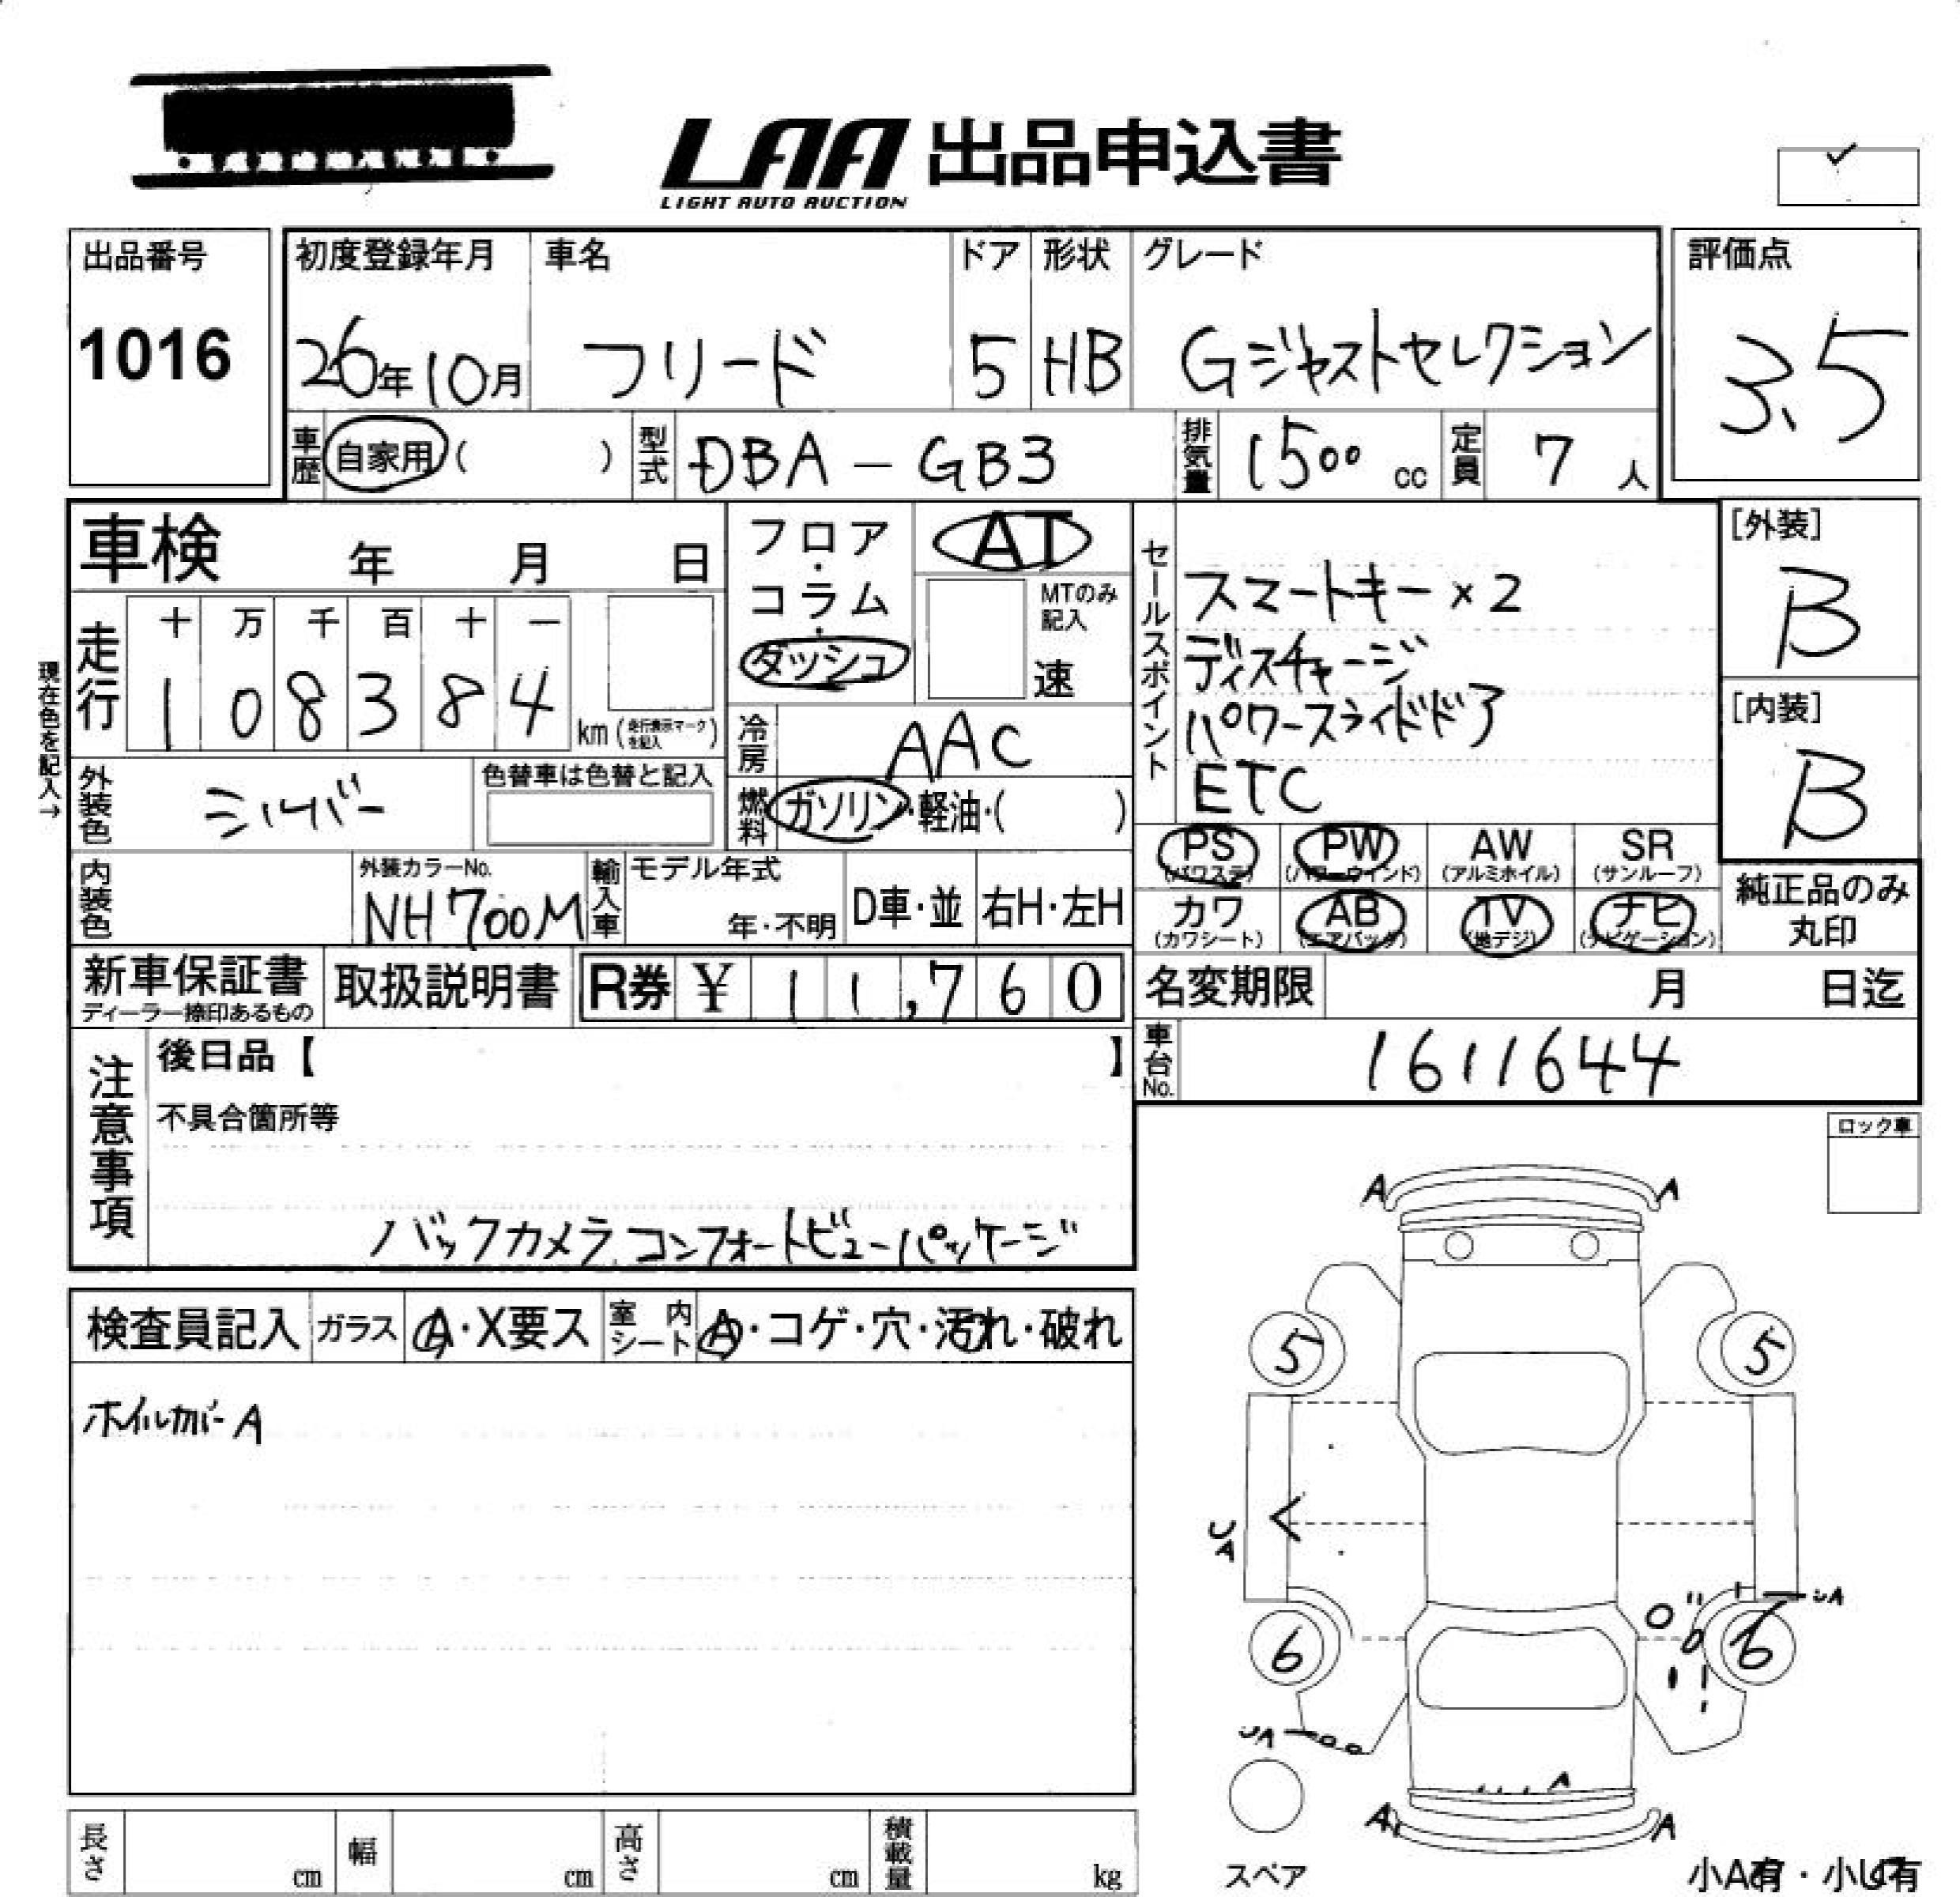 LAA 出品申込書
LIGHT AUTO AUCTION
出品番号
1016
初度登録年月 車名 ドア 形状 グレード
26年10月 フリード 5 HB Gジャストセレクション
評価点
3.5
車歴 自家用( ) 型式 DBA-GB3 排気量 1500 cc 定員 7 人
車検 年 月 日
現在色を記入→
走行 十 万 千 百 十 一
1 0 8 3 8 4 km(走行表示マークを記入)
フロア・コラム・ダッシュ
AT
MTのみ記入
速
冷房 AAC
燃料 ガソリン・軽油・( )
セールスポイント
スマートキー×2
ディスチャージ
パワースライドドア
ETC
[外装]
B
[内装]
B
外装色 シルバー 色替車は色替と記入
内装色 外装カラーNo. NH700M
輸入車 モデル年式 年・不明 D車・並 右H・左H
PS (パワステ) PW (パワーウインド) AW (アルミホイル) SR (サンルーフ)
カワ (カワシート) AB (エアバック) TV (地デジ) ナビ (ナビゲーション)
純正品のみ丸印
新車保証書 ディーラー捺印あるもの 取扱説明書 R券 ¥ 11,760
名変期限 月 日迄
車台No. 1611644
注意事項
後日品【 】
不具合箇所等
バックカメラ、コンフォートビューパッケージ
ロック車
検査員記入 ガラス A・X要ス 室内シート A・コゲ・穴・汚れ・破れ
ホイルカバーA
A A
5 5
UA
UA
6 6
UA
A
A A
スペア
小A有・小U有
長さ cm 幅 cm 高さ cm 積載量 kg